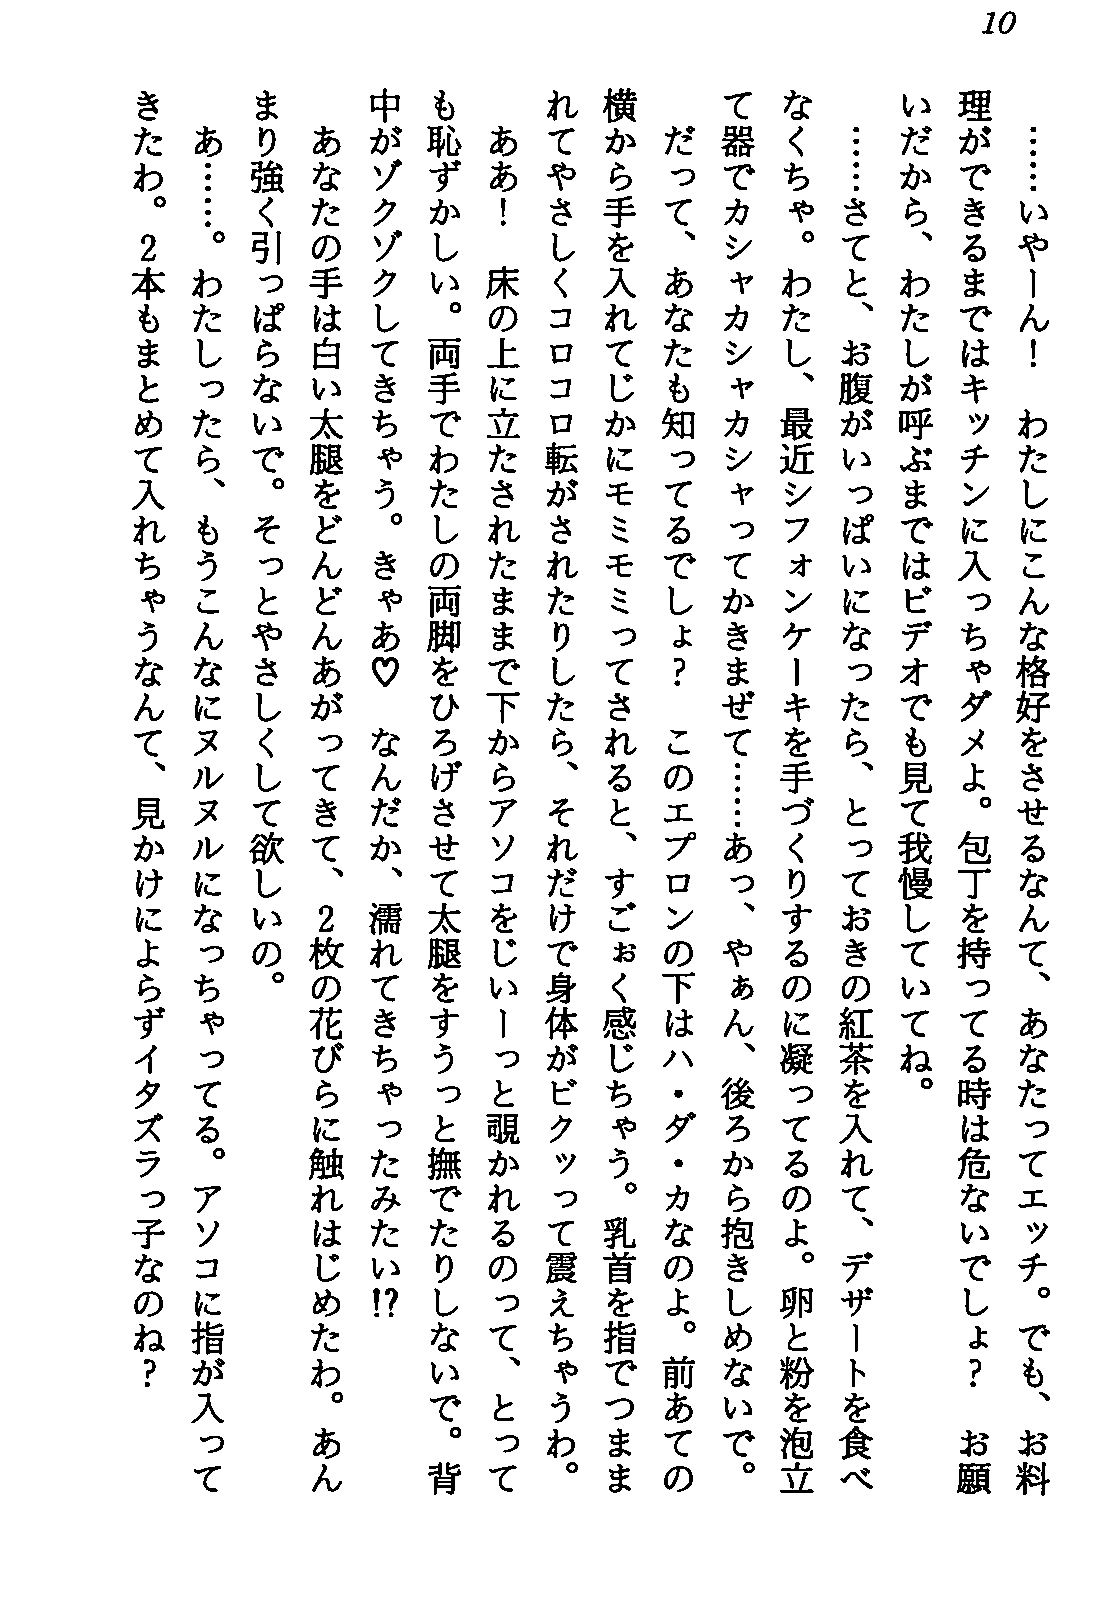 10
……いやーん！　わたしにこんな格好をさせるなんて、あなたってエッチ。でも、お料
理ができるまではキッチンに入っちゃダメよ。包丁を持ってる時は危ないでしょ？　お願
いだから、わたしが呼ぶまではビデオでも見て我慢していてね。
……さてと、お腹がいっぱいになったら、とっておきの紅茶を入れて、デザートを食べ
なくちゃ。わたし、最近シフォンケーキを手づくりするのに凝ってるのよ。卵と粉を泡立
て器でカシャカシャカシャってかきまぜて……あっ、やぁん、後ろから抱きしめないで。
だって、あなたも知ってるでしょ？　このエプロンの下はハ・ダ・カなのよ。前あての
横から手を入れてじかにモミモミってされると、すごぉく感じちゃう。乳首を指でつまま
れてやさしくコロコロ転がされたりしたら、それだけで身体がビクッって震えちゃうわ。
ああ！　床の上に立たされたままで下からアソコをじいーっと覗かれるのって、とって
も恥ずかしい。両手でわたしの両脚をひろげさせて太腿をすうっと撫でたりしないで。背
中がゾクゾクしてきちゃう。きゃあ♡　なんだか、濡れてきちゃったみたい!?
あなたの手は白い太腿をどんどんあがってきて、2枚の花びらに触れはじめたわ。あん
まり強く引っぱらないで。そっとやさしくして欲しいの。
あ……。わたしったら、もうこんなにヌルヌルになっちゃってる。アソコに指が入って
きたわ。2本もまとめて入れちゃうなんて、見かけによらずイタズラっ子なのね？